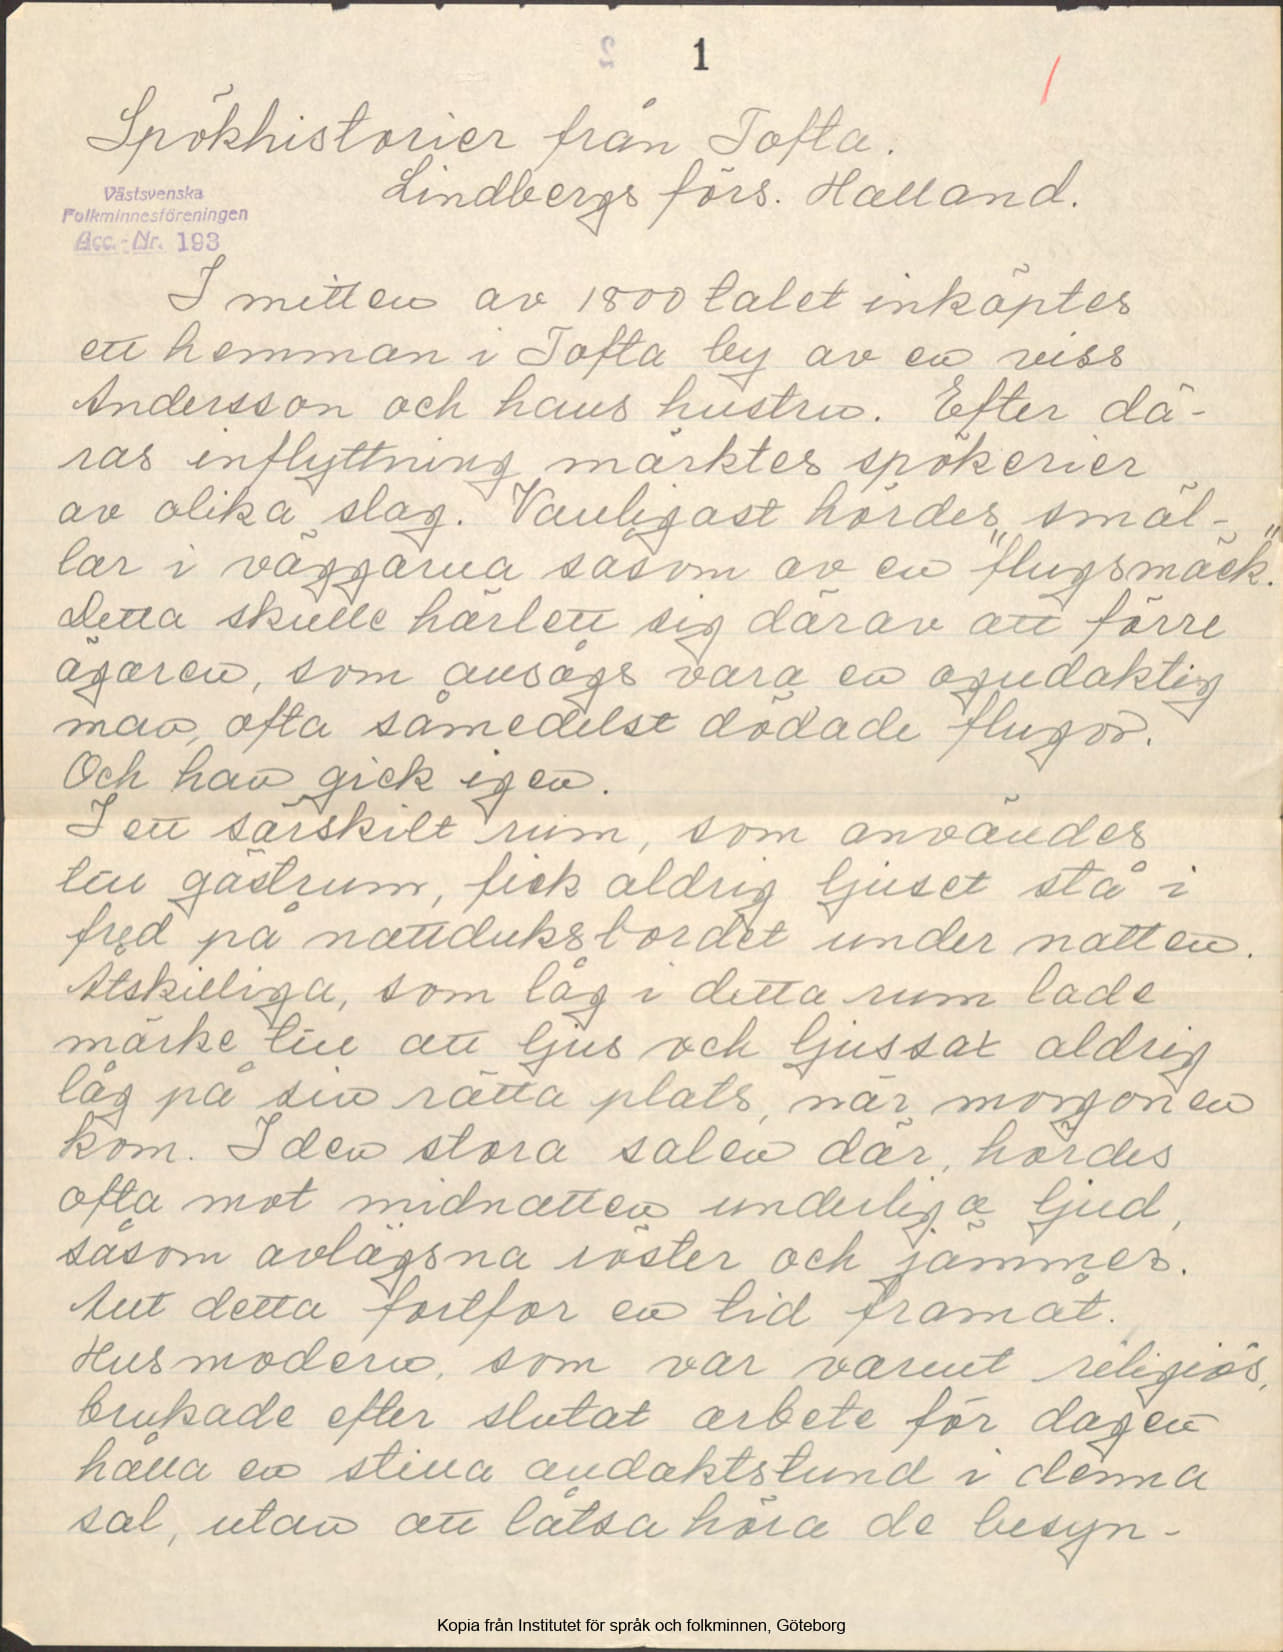 1
Spökhistorier från Tofta.
Lindbergs förs. Halland.
Västsvenska
Folkminnesföreningen
Acc.-Nr. 193
I mitten av 1800 talet inköptes
ett hemman i Tofta by av en viss
Andersson och hans hustru. Efter dä-
ras inflyttning märktes spökerier
av olika slag. Vanligast hördes smäl-
lar i väggarna såsom av en "flugsmäck".
Detta skulle härlett sig därav att förre
ägaren, som ansågs vara en ogudaktig
man, ofta såmedelst dödade flugor.
Och han gick igen.
I ett särskilt rum, som användes
till gästrum, fick aldrig ljuset stå i
fred på nattduksbordet under natten.
Åtskilliga, som låg i detta rum lade
märke till att ljus och ljussax aldrig
låg på sin rätta plats, när morgonen
kom. I den stora salen där, hördes
ofta mot midnatten underliga ljud,
såsom avlägsna röster och jämmer.
Allt detta fortfor en tid framåt.
Husmodern, som var varmt religiös,
brukade efter slutat arbete för dagen
hålla en stilla andaktstund i denna
sal, utan att låtsa höra de besyn-
Kopia från Institutet för språk och folkminnen, Göteborg